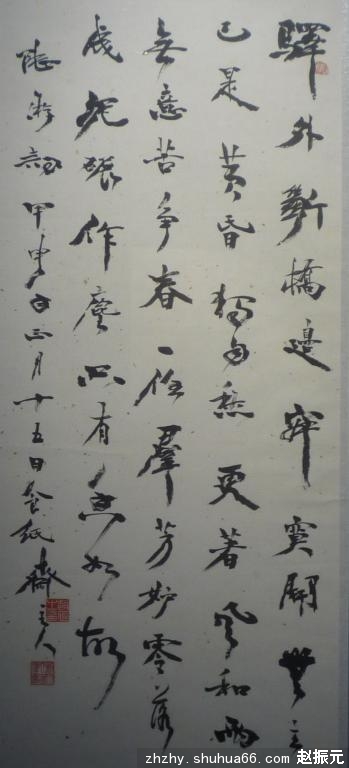 驛外斷橋邊寂寞開無主
已是黄昏獨自愁更著風和雨
無意苦爭春一任羣芳妒零落
成泥碾作塵只有香如故
陸游詞甲申年正月十五日紙齋主人
zhzhy.shuhua66.com 赵振元